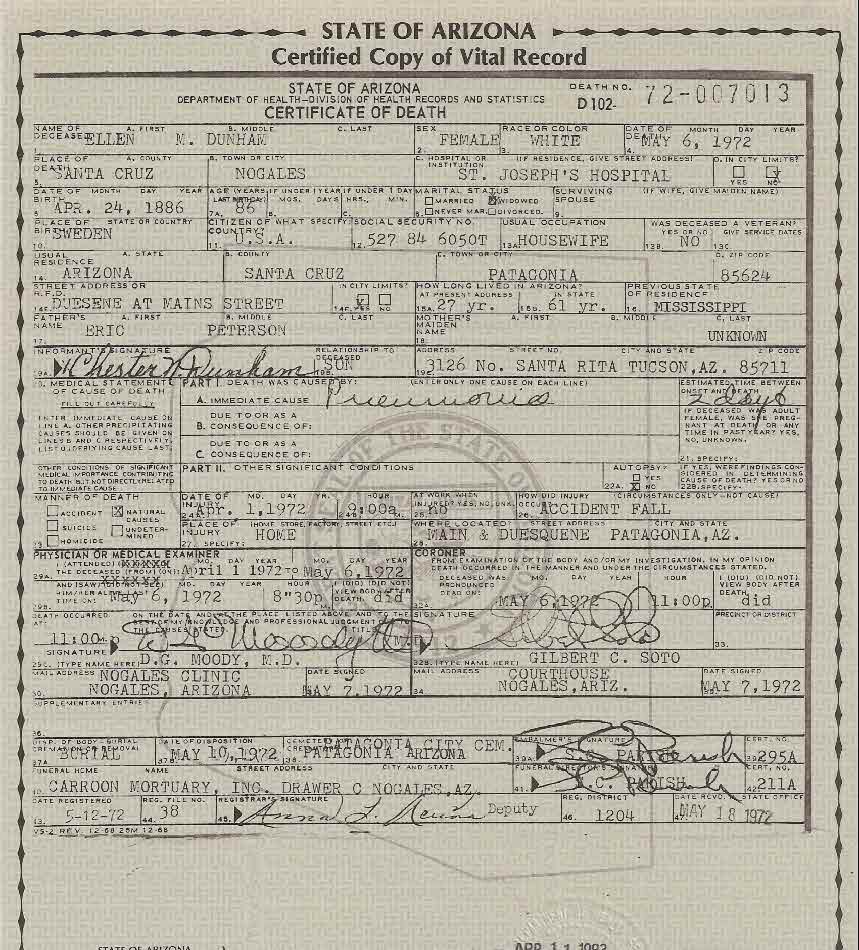 STATE OF ARIZONA
Certified Copy of Vital Record
STATE OF ARIZONA
DEPARTMENT OF HEALTH-DIVISION OF HEALTH RECORDS AND STATISTICS
CERTIFICATE OF DEATH
DEATH NO.
D 102- 72-007013
NAME OF DECEASED A. FIRST B. MIDDLE C. LAST SEX RACE OR COLOR DATE OF DEATH MONTH DAY YEAR
1. ELLEN M. DUNHAM 2. FEMALE 3. WHITE 4. MAY 6, 1972
PLACE OF DEATH A. COUNTY B. TOWN OR CITY C. HOSPITAL OR INSTITUTION (IF RESIDENCE, GIVE STREET ADDRESS) D. IN CITY LIMITS?
5. SANTA CRUZ NOGALES ST. JOSEPH'S HOSPITAL YES NO
DATE OF BIRTH MONTH DAY YEAR AGE (YEARS LAST BIRTHDAY) IF UNDER 1 YEAR MOS. DAYS IF UNDER 1 DAY HRS. MIN. MARITAL STATUS SURVIVING SPOUSE (IF WIFE, GIVE MAIDEN NAME)
APR. 24, 1886 7A. 86 MARRIED WIDOWED NEVER MAR. DIVORCED. 9.
PLACE OF BIRTH STATE OR COUNTRY CITIZEN OF WHAT COUNTRY SPECIFY: SOCIAL SECURITY NO. USUAL OCCUPATION WAS DECEASED A VETERAN? YES OR NO GIVE SERVICE DATES
10. SWEDEN 11. U.S.A. 12. 527 84 6050T 13A. HOUSEWIFE 13B. NO 13C.
USUAL RESIDENCE A. STATE B. COUNTY C. TOWN OR CITY D. ZIP CODE
14. ARIZONA SANTA CRUZ PATAGONIA 85624
STREET ADDRESS OR R.F.D. IN CITY LIMITS? HOW LONG LIVED IN ARIZONA? AT PRESENT ADDRESS IN STATE PREVIOUS STATE OF RESIDENCE
14E. DUESENE AT MAINS STREET 14F. YES NO 15A. 27 yr. 15B. 61 yr. 16. MISSISSIPPI
FATHER'S NAME A. FIRST B. MIDDLE C. LAST MOTHER'S MAIDEN NAME A. FIRST B. MIDDLE C. LAST
17. ERIC PETERSON 18. UNKNOWN
INFORMANT'S SIGNATURE RELATIONSHIP TO DECEASED ADDRESS STREET NO. CITY AND STATE ZIP CODE
19A. Chester W. Dunham 19B. SON 19C. 3126 No. SANTA RITA TUCSON,AZ. 85711
MEDICAL STATEMENT OF CAUSE OF DEATH PART I. DEATH WAS CAUSED BY: (ENTER ONLY ONE CAUSE ON EACH LINE) ESTIMATED TIME BETWEEN ONSET AND DEATH
FILL OUT CAREFULLY A. IMMEDIATE CAUSE Pneumonia 2 days
ENTER IMMEDIATE CAUSE ON LINE A. OTHER PRECIPITATING CAUSES SHOULD BE GIVEN ON LINES B AND C RESPECTIVELY, LIST UNDERLYING CAUSE LAST.
DUE TO OR AS A
B. CONSEQUENCE OF:
DUE TO OR AS A
C. CONSEQUENCE OF:
IF DECEASED WAS ADULT FEMALE, WAS SHE PREGNANT AT DEATH OR ANY TIME IN PAST YEAR? YES, NO, UNKNOWN.
21. SPECIFY:
OTHER CONDITIONS OF SIGNIFICANT MEDICAL IMPORTANCE CONTRIBUTING TO DEATH BUT NOT DIRECTLY RELATED TO IMMEDIATE CAUSE.
PART II. OTHER SIGNIFICANT CONDITIONS AUTOPSY? YES 22A. NO
IF YES, WERE FINDINGS CONSIDERED IN DETERMINING CAUSE OF DEATH? YES OR NO 22B. SPECIFY:
MANNER OF DEATH DATE OF INJURY MO. DAY YR. HOUR AT WORK WHEN INJURED? YES, NO, UNK. HOW DID INJURY OCCUR? (CIRCUMSTANCES ONLY-NOT CAUSE)
ACCIDENT NATURAL CAUSES 24A. Apr. 1,1972 9:00a. 25. no ACCIDENT FALL
SUICIDE UNDETERMINED PLACE OF INJURY (HOME, STORE, FACTORY, STREET, ETC.) WHERE LOCATED? STREET ADDRESS CITY AND STATE
HOMICIDE 27. SPECIFY: HOME 28. MAIN & DUESQUENE PATAGONIA,AZ.
PHYSICIAN OR MEDICAL EXAMINER CORONER
I (ATTENDED) THE DECEASED (FROM) MO. DAY YEAR MO. DAY YEAR
29A. April 1 1972 to May 6,1972
FROM EXAMINATION OF THE BODY AND/OR MY INVESTIGATION, IN MY OPINION DEATH OCCURRED IN THE MANNER AND UNDER THE CIRCUMSTANCES STATED.
29B. May 6, 1972 8"30p I (DID) (DID NOT) VIEW BODY AFTER DEATH. did
DECEASED WAS PRONOUNCED DEAD ON: MO. DAY YEAR HOUR I (DID) (DID NOT) VIEW BODY AFTER DEATH.
32A. MAY 6,1972 11:00p. did
DEATH OCCURRED AT: ON THE DATE AND AT THE PLACE LISTED ABOVE AND TO THE BEST OF MY KNOWLEDGE AND PROFESSIONAL JUDGMENT OF THE CAUSES STATED. TITLE SIGNATURE PRECINCT OR DISTRICT
11:00p M.D. 33.
SIGNATURE
29C. (TYPE NAME HERE) D.G. MOODY, M.D. 32B. (TYPE NAME HERE) GILBERT C. SOTO
MAIL ADDRESS NOGALES CLINIC DATE SIGNED MAIL ADDRESS COURTHOUSE DATE SIGNED
30. NOGALES, ARIZONA MAY 7,1972 34. NOGALES,ARIZ. MAY 7,1972
SUPPLEMENTARY ENTRIES
36.
DISP. OF BODY-BURIAL CREMATION OR REMOVAL DATE OF DISPOSITION CEMETERY OR CREMATORY EMBALMER'S SIGNATURE CERT. NO.
37A. BURIAL 37B. MAY 10,1972 PATAGONIA CITY CEM. PATAGONIA ARIZONA 39A. PARISH 39. 295A
FUNERAL HOME NAME STREET ADDRESS CITY AND STATE FUNERAL DIRECTOR'S SIGNATURE CERT. NO.
40. CARROON MORTUARY, INC. DRAWER C NOGALES,AZ. 41. PARISH 42. 211A
DATE REGISTERED REG. FILE NO. REGISTRAR'S SIGNATURE REG. DISTRICT DATE RECVD. STATE OFFICE
43. 5-12-72 44. 38 45. Anna L. Deputy 46. 1204 47. MAY 18 1972
VS-2 REV. 12-68 25M 12-68
STATE OF ARIZONA